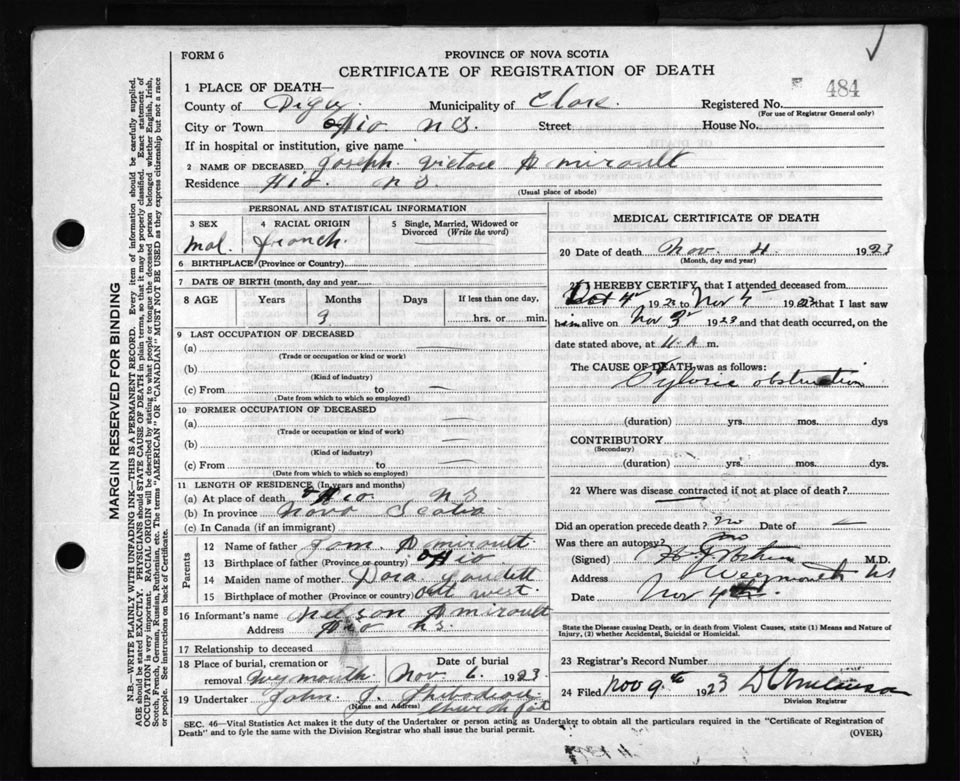 FORM 6
PROVINCE OF NOVA SCOTIA
CERTIFICATE OF REGISTRATION OF DEATH
484
1 PLACE OF DEATH—
County of Digby Municipality of Clare. Registered No.
(For use of Registrar General only)
City or Town Ohio N S. Street House No.
If in hospital or institution, give name
2 NAME OF DECEASED Joseph. Victore Amiroult
Residence Hio. N S.
(Usual place of abode)
PERSONAL AND STATISTICAL INFORMATION
3 SEX
Mal.
4 RACIAL ORIGIN
French.
5 Single, Married, Widowed or Divorced (Write the word)
6 BIRTHPLACE (Province or Country)
7 DATE OF BIRTH (month, day and year)
8 AGE Years Months Days If less than one day,
9 hrs. or min.
9 LAST OCCUPATION OF DECEASED
(a) —
(Trade or occupation or kind or work)
(b)
(Kind of industry)
(c) From to —
(Date from which to which so employed)
10 FORMER OCCUPATION OF DECEASED
(a) —
(Trade or occupation or kind of work)
(b) —
(Kind of industry)
(c) From to —
(Date from which to which so employed)
11 LENGTH OF RESIDENCE (In years and months)
(a) At place of death Ohio N S
(b) In province Nova Scotia
(c) In Canada (if an immigrant)
Parents
12 Name of father Tom. Amiroult.
13 Birthplace of father (Province or country) Ohio
14 Maiden name of mother Dora Goudett
15 Birthplace of mother (Province or country) out west.
16 Informant's name Nelson Amiroult
Address Ohio N S.
17 Relationship to deceased
18 Place of burial, cremation or removal Weymouth Date of burial Nov 6. 1923
19 Undertaker John. J. Thibodeau
(Name and Address) Church Pt
MEDICAL CERTIFICATE OF DEATH
20 Date of death Nov. 4. 1923
(Month, day and year)
21 I HEREBY CERTIFY, that I attended deceased from
Oct 4 1923 to Nov 4 1923 that I last saw
him alive on Nov 3 1923 and that death occurred, on the
date stated above, at 11. A m.
The CAUSE OF DEATH was as follows:
Pyloric obstruction
(duration) yrs. mos. dys
CONTRIBUTORY
(Secondary)
(duration) yrs. mos. dys.
22 Where was disease contracted if not at place of death?
Did an operation precede death? no Date of —
Was there an autopsy? no
(Signed) M.D.
Address Weymouth NS
Date Nov 4th.
State the Disease causing Death, or in Death from Violent Causes, state (1) Means and Nature of
Injury, (2) whether Accidental, Suicidal or Homicidal.
23 Registrar's Record Number
24 Filed Nov 9th 1923
Division Registrar
SEC. 46—Vital Statistics Act makes it the duty of the Undertaker or person acting as Undertaker to obtain all the particulars required in the "Certificate of Registration of
Death" and to fyle the same with the Division Registrar who shall issue the burial permit.
(OVER)
MARGIN RESERVED FOR BINDING
N.B.—WRITE PLAINLY WITH UNFADING INK—THIS IS A PERMANENT RECORD. Every item of information should be carefully supplied.
AGE should be stated EXACTLY. PHYSICIANS should STATE CAUSE OF DEATH in plain terms, so that it may be properly classified. Exact statement of
OCCUPATION is very important. RACIAL ORIGIN will be described by stating to what people or tongue the deceased person belonged whether English, Irish,
Scotch, French, German, Russian, Ruthenian, etc. The terms "AMERICAN" OR "CANADIAN" MUST NOT BE USED as they express citizenship but not a race
or people. See instructions on back of Certificate.